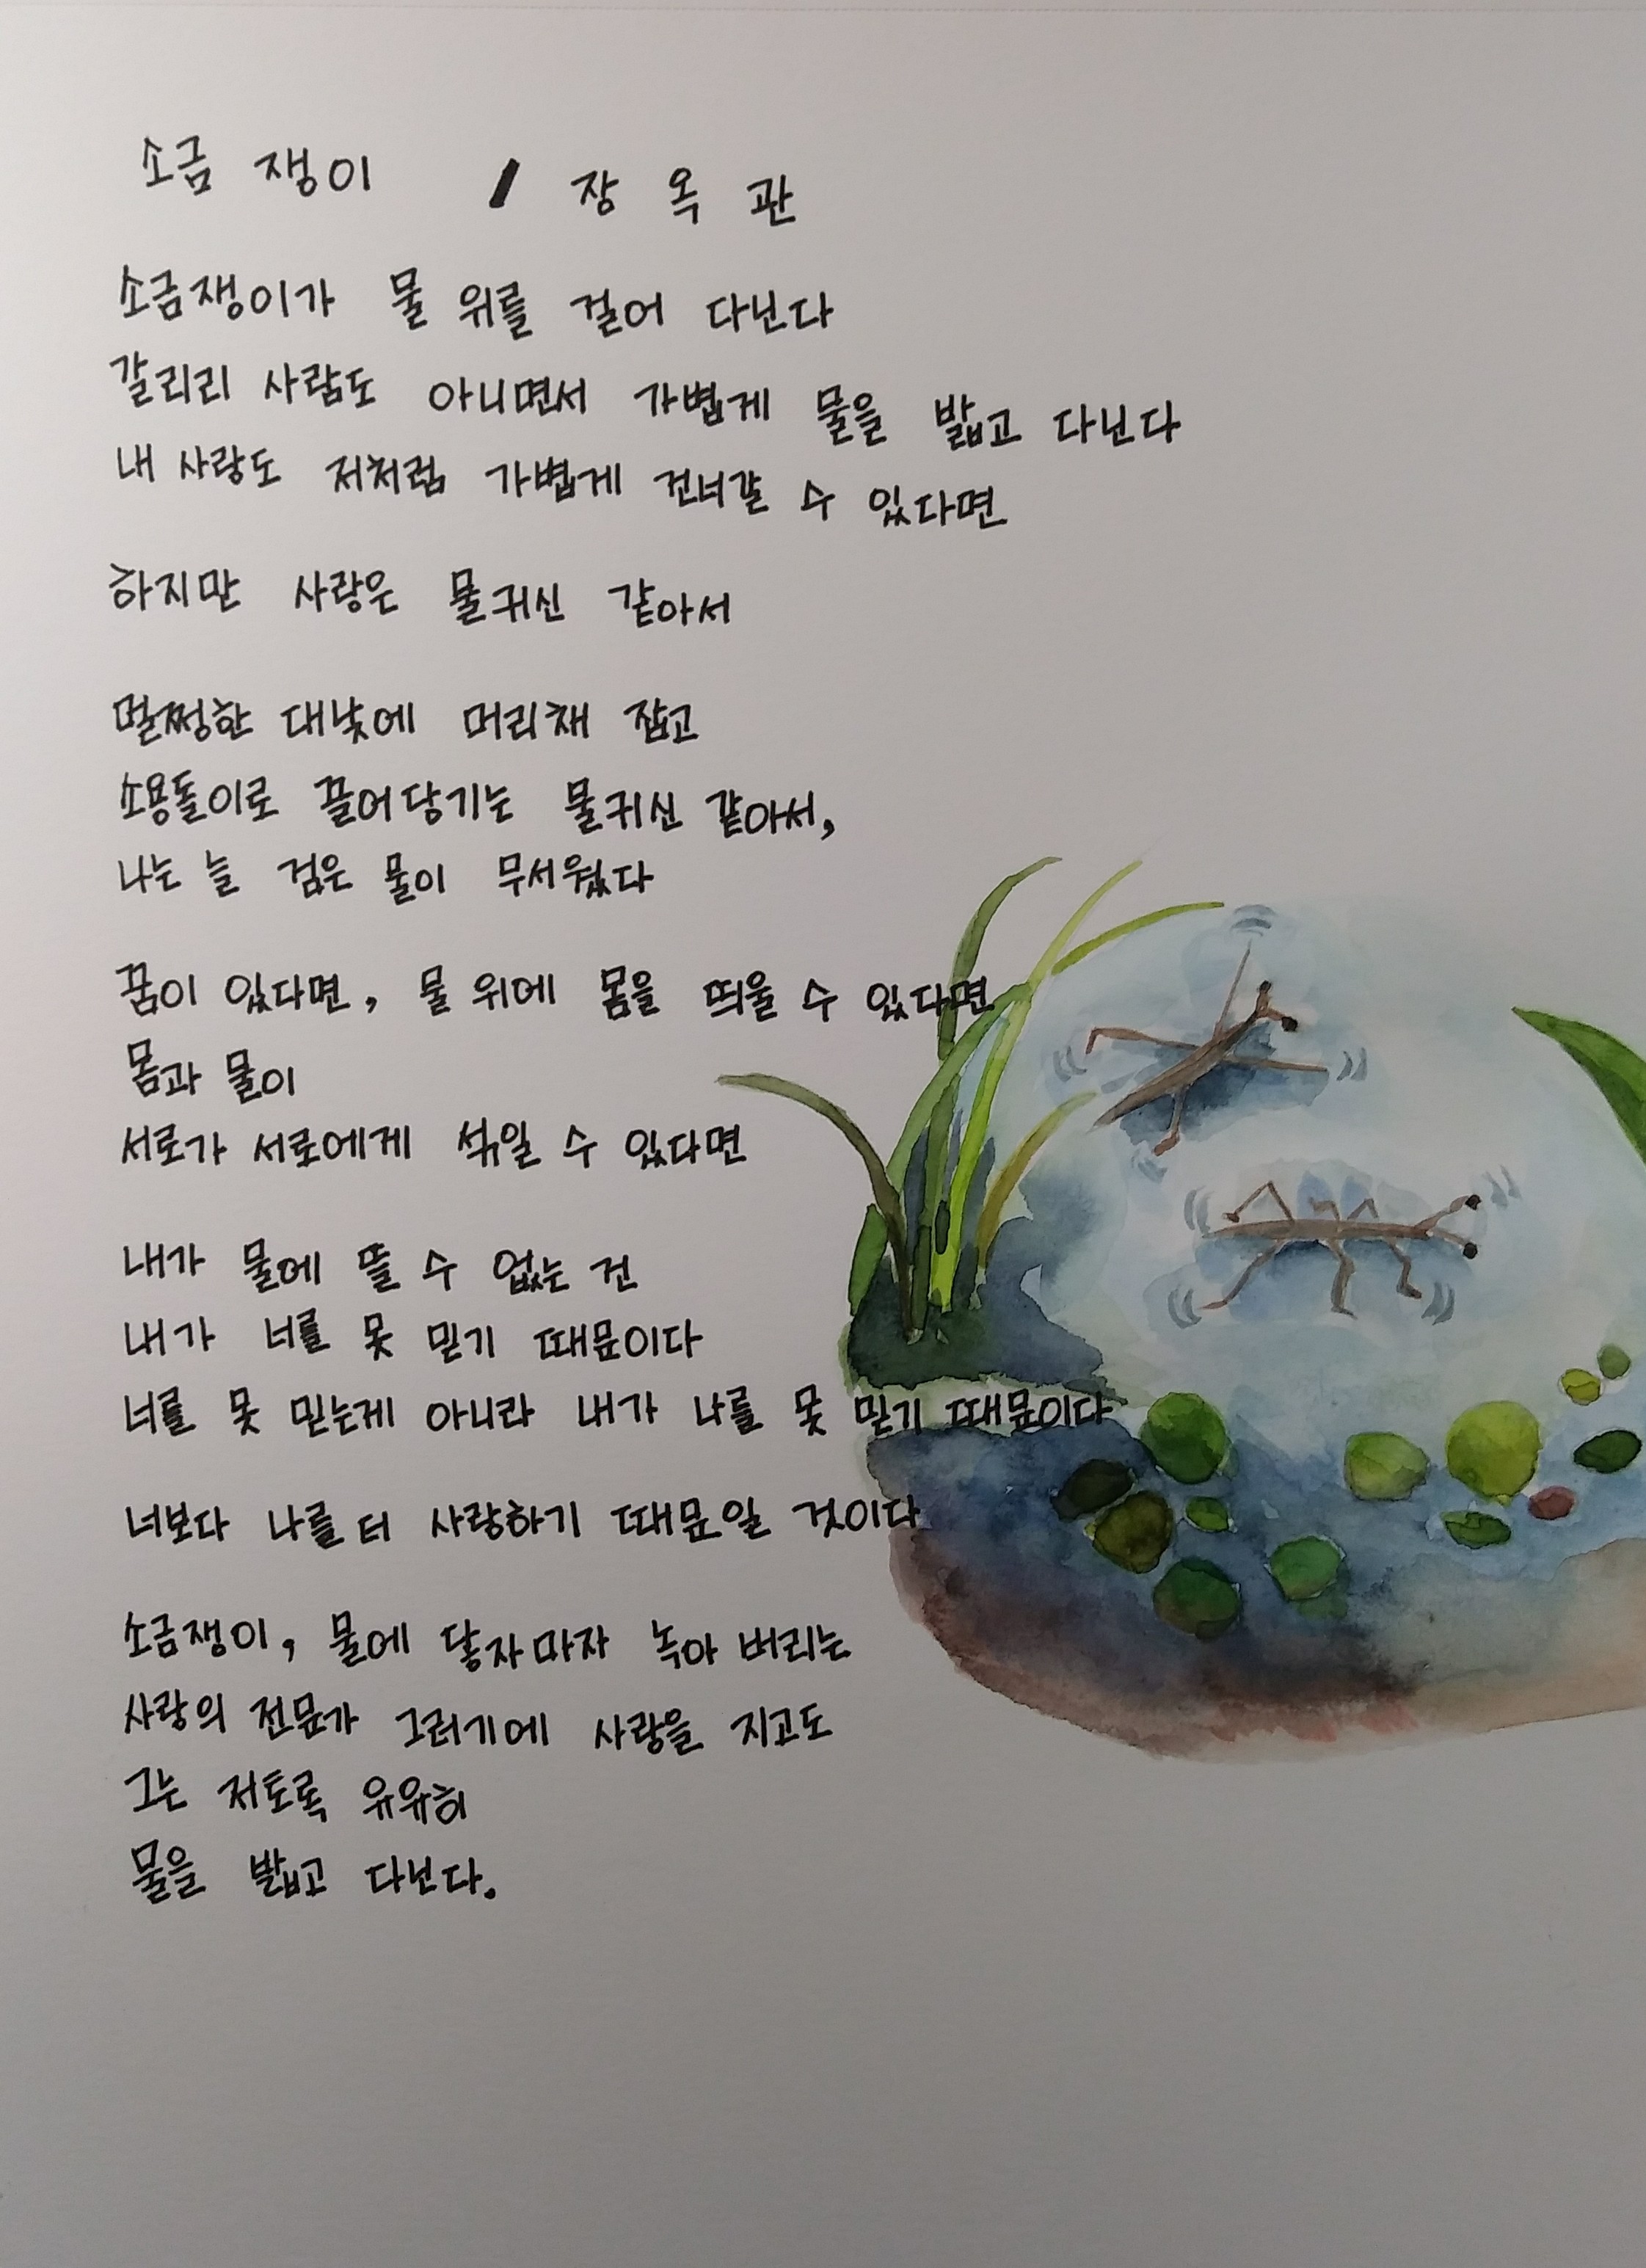 소금 쟁이 / 장 옥 관
소금쟁이가 물 위를 걸어 다닌다
갈리리 사람도 아니면서 가볍게 물을 밟고 다닌다
내 사랑도 저처럼 가볍게 건너갈 수 있다면
하지만 사랑은 물귀신 같아서
멀쩡한 대낮에 머리채 잡고
소용돌이로 끌어당기는 물귀신 같아서,
나는 늘 검은 물이 무서웠다
꿈이 있다면, 물 위에 몸을 띄울 수 있다면
몸과 물이
서로가 서로에게 섞일 수 있다면
내가 물에 뜰 수 없는 건
내가 너를 못 믿기 때문이다
너를 못 믿는게 아니라 내가 나를 못 믿기 때문이다
너보다 나를 더 사랑하기 때문일 것이다
소금쟁이, 물에 닿자마자 녹아 버리는
사랑의 전문가 그러기에 사랑을 지고도
그는 저토록 유유히
물을 밟고 다닌다.